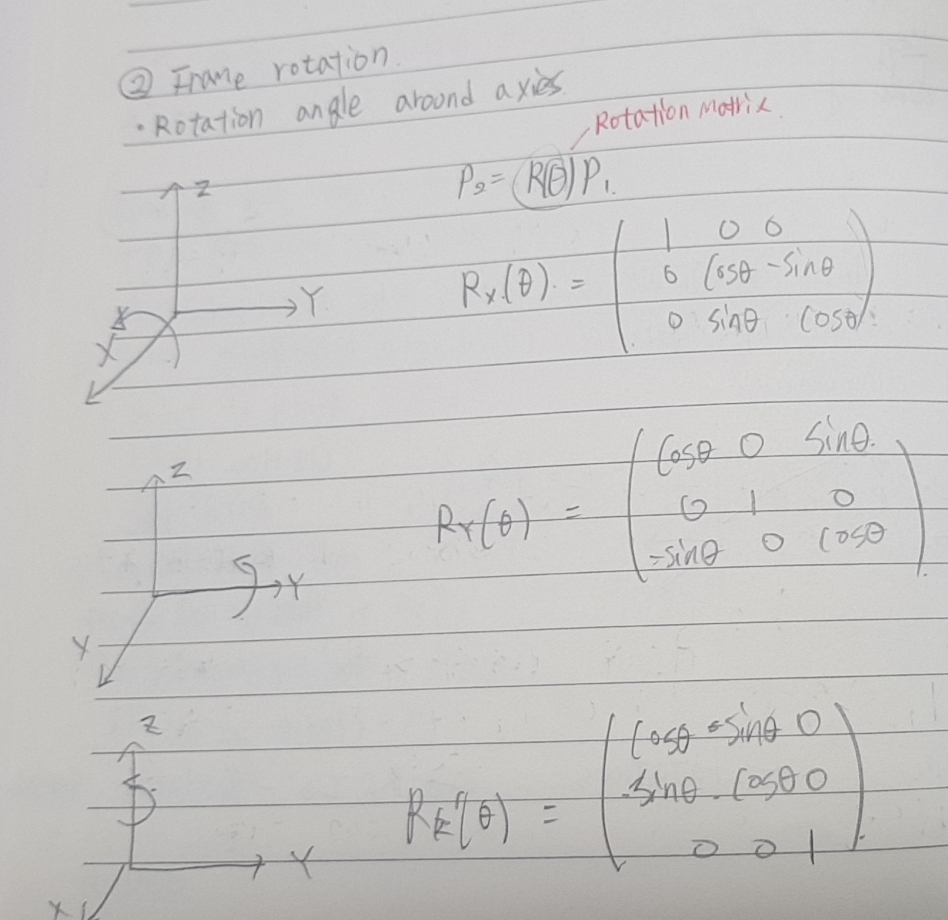 ② Frame rotation.
• Rotation angle around axies
Rotation Matrix.
P₂ = R(θ) P₁.
Z
Y
X
Rx(θ) =
1 0 0
0 Cosθ -Sinθ
0 sinθ Cosθ
Z
Y
Y
RY(θ) =
Cosθ 0 Sinθ.
0 1 0
-sinθ 0 Cosθ
Z
Y
X
(θ) =
Cosθ -Sinθ 0
Sinθ Cosθ 0
0 0 1